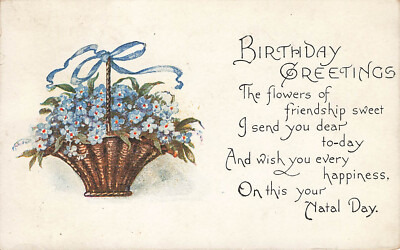 BIRTHDAY
GREETINGS
The flowers of
friendship sweet
I send you dear
to-day
And wish you every
happiness,
On this your
Natal Day.